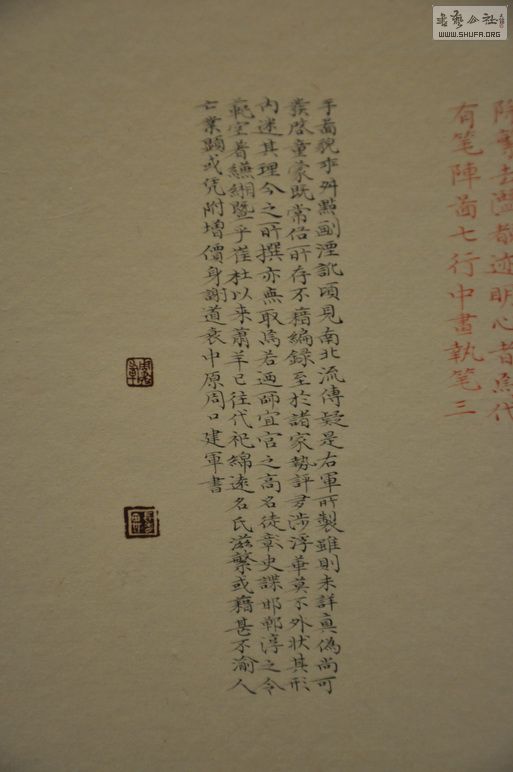 有笔陣啚七行中畫執笔三
手啚貌乖舛點画湮訛頃見南北流傳疑是右軍所製雖則未詳真偽尚可
發啓童蒙既常俗所存不藉編録至於諸家勢評多涉浮華莫不外状其形
內迷其理今之所撰亦無取焉若廼師宜官之高名徒彰史諜邯鄲淳之令
範空著縑緗暨乎崔杜以来蕭羊已往代祀綿遠名氏滋繁或藉甚不渝人
亡業顯或凭附增價身謝道衰中原周口建軍書
書藝公社
WWW.SHUFA.ORG